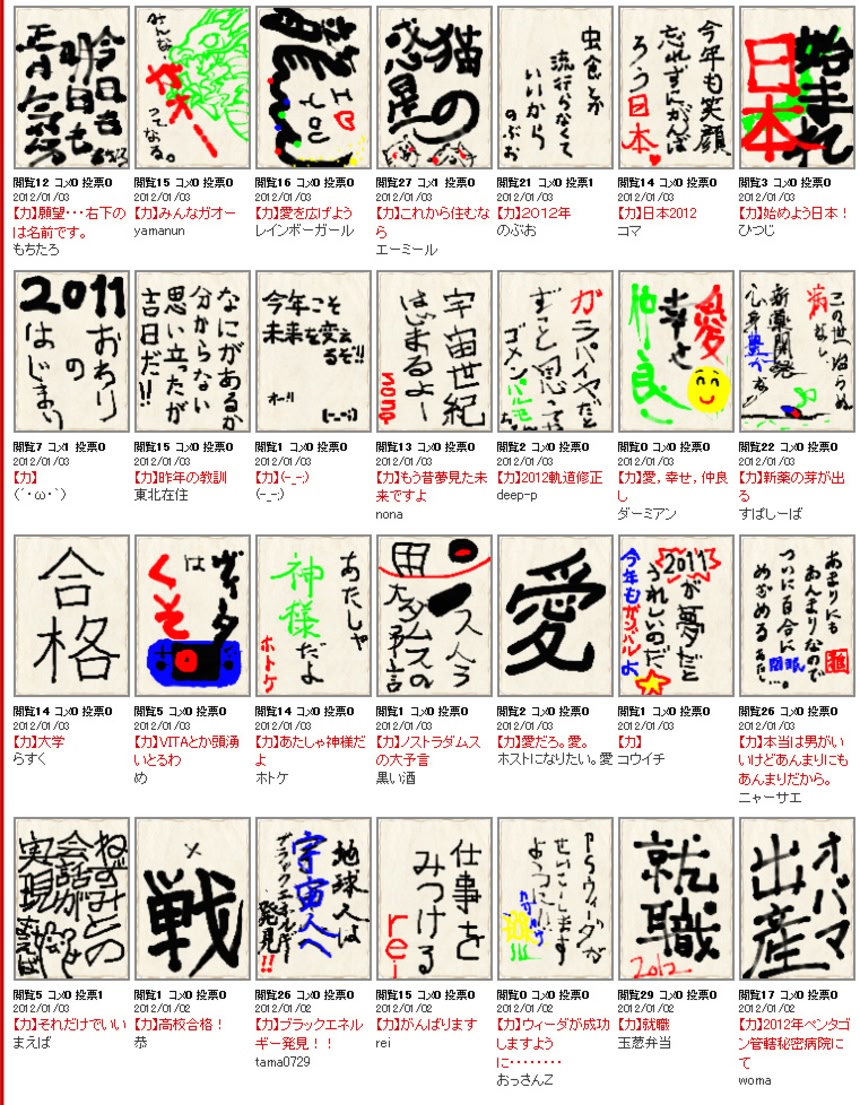 今日も
明日も
正月気分
もちたろ
閲覧12 コメ0 投票0
2012/01/03
【力】願望･･･右下の
は名前です。
もちたろ
みんな、
ガオー
ってなる。
閲覧15 コメ0 投票0
2012/01/03
【力】みんなガオー
yamanun
龍
I
YOU
閲覧16 コメ0 投票0
2012/01/03
【力】愛を広げよう
レインボーガール
猫の
惑星
閲覧27 コメ1 投票0
2012/01/03
【力】これから住むな
ら
エーミール
虫食とか
流行らなくて
いいから
のぶお
閲覧21 コメ0 投票1
2012/01/03
【力】2012年
のぶお
今年も笑顔
忘れずにがんば
ろう日本
閲覧14 コメ0 投票0
2012/01/03
【力】日本2012
コマ
始まれ
日本
閲覧3 コメ0 投票0
2012/01/03
【力】始めよう日本！
ひつじ
2011
おわり
の
はじまり
閲覧7 コメ1 投票0
2012/01/03
【力】
(´・ω・`)
なにがあるか
分からない
思い立ったが
吉日だ!!
閲覧15 コメ0 投票0
2012/01/03
【力】昨年の教訓
東北在住
今年こそ
未来を変え
るぞ!!
オー!!
(-_-;)
閲覧1 コメ0 投票0
2012/01/03
【力】(-_-;)
(-_-;)
宇宙世紀
はじまるよー
nona
閲覧13 コメ0 投票0
2012/01/03
【力】もう昔夢見た未
来ですよ
nona
ガラパイヤだと
ずっと思ってた
ゴメンパルモちゃん
閲覧2 コメ0 投票0
2012/01/03
【力】2012軌道修正
deep-p
愛
幸せ
仲良し
閲覧0 コメ0 投票0
2012/01/03
【力】愛，幸せ，仲良
し
ダーミアン
この世ならぬ
病なし、
新薬開発
心身豊かな
閲覧22 コメ0 投票0
2012/01/03
【力】新薬の芽が出
る
すぱしーば
合格
閲覧14 コメ0 投票0
2012/01/03
【力】大学
らすく
ヴィータ
は
くそ
閲覧5 コメ0 投票0
2012/01/03
【力】VITAとか頭湧
いとるわ
め
あたしゃ
神様だよ
ホトケ
閲覧14 コメ0 投票0
2012/01/03
【力】あたしゃ神様だ
よ
ホトケ
大予言
閲覧1 コメ0 投票0
2012/01/03
【力】ノストラダムス
の大予言
黒い酒
愛
閲覧2 コメ0 投票0
2012/01/03
【力】愛だろ。愛。
ホストになりたい。愛
2011
が夢だと
うれしいのだ
今年もガンバルよ
閲覧1 コメ0 投票0
2012/01/03
【力】
コウイチ
あまりにも
あんまりなので
ついに百合に開眼
めざめる
閲覧26 コメ0 投票0
2012/01/03
【力】本当は男がい
いけどあんまりにも
あんまりだから。
ニャーサエ
ねずみとの
会話が
実現
まえば
閲覧5 コメ0 投票1
2012/01/03
【力】それだけでいい
まえば
戦
閲覧1 コメ0 投票0
2012/01/02
【力】高校合格！
恭
地球人は
宇宙人へ
ブラックエネルギー
発見!!
閲覧26 コメ0 投票0
2012/01/02
【力】ブラックエネル
ギー発見！！
tama0729
仕事を
みつける
rei
閲覧15 コメ0 投票0
2012/01/02
【力】がんばります
rei
PSヴィータが
せいこーします
ように!!
閲覧0 コメ0 投票0
2012/01/02
【力】ウィーダが成功
しますよう
に･･･････
おっさんZ
就職
2012
閲覧29 コメ0 投票0
2012/01/02
【力】就職
玉葱弁当
オバマ
出産
閲覧17 コメ0 投票0
2012/01/02
【力】2012年ペンタゴ
ン管轄秘密病院に
て
woma